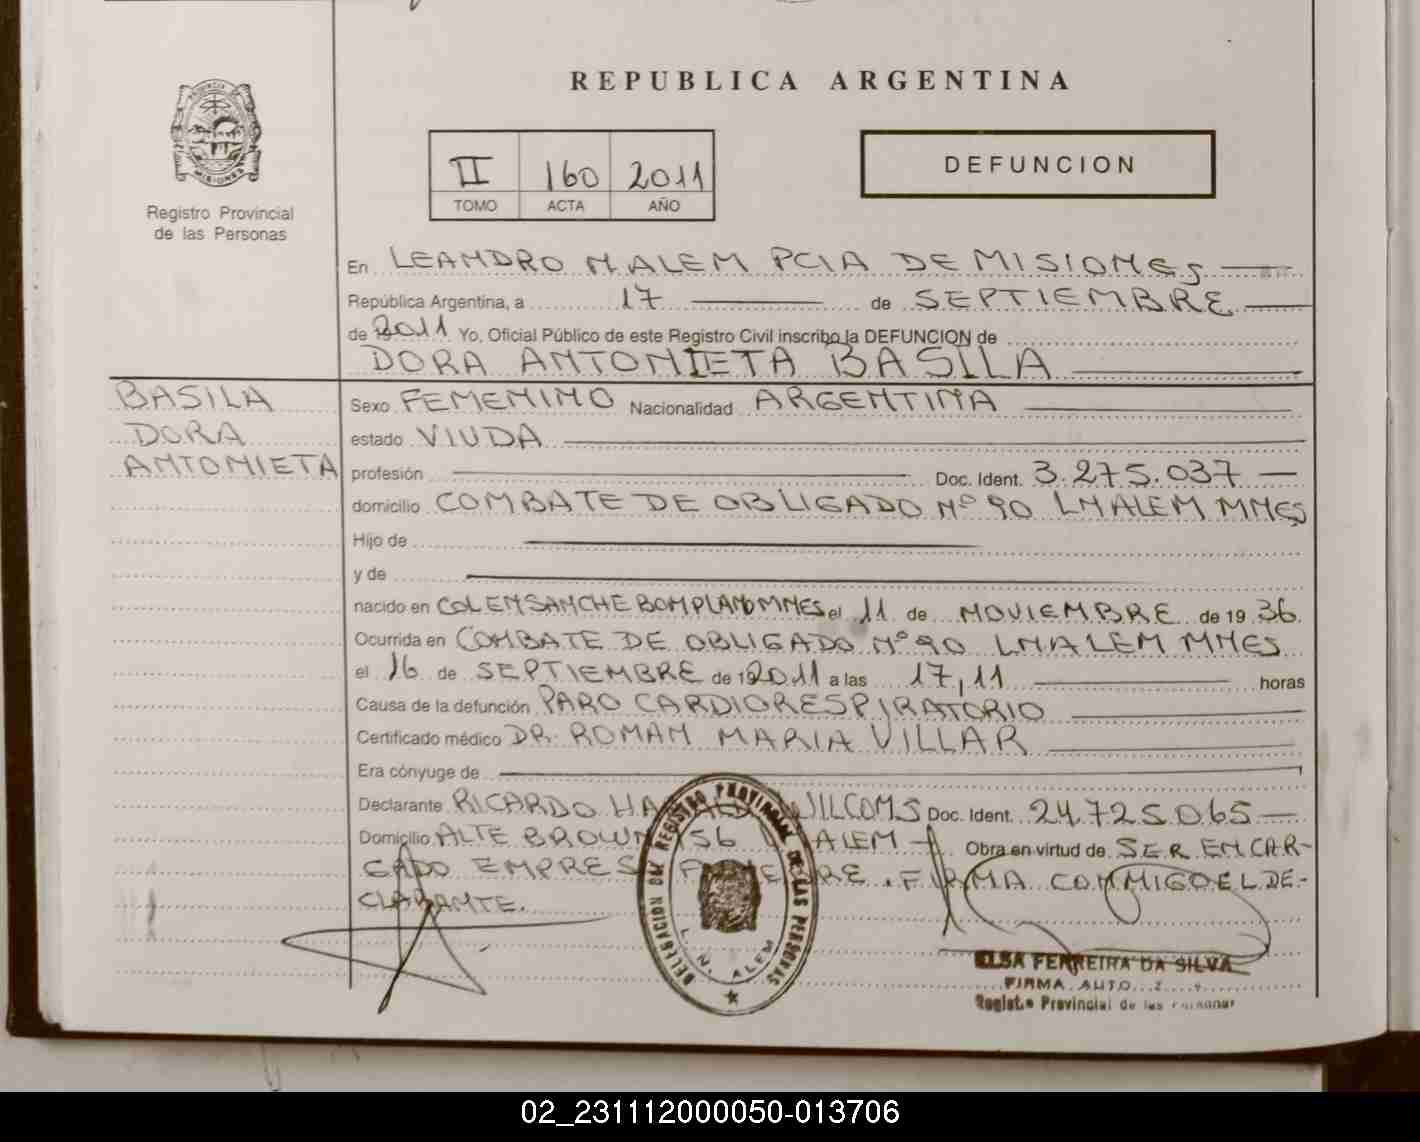 REPUBLICA ARGENTINA
II 160 2011
TOMO ACTA AÑO
DEFUNCION
PROVINCIA DE MISIONES
Registro Provincial
de las Personas
En LEANDRO N. ALEM PCIA DE MISIONES
República Argentina, a 17 de SEPTIEMBRE
de 2011 Yo, Oficial Público de este Registro Civil inscribo la DEFUNCION de
DORA ANTONIETA BASILA
BASILA
DORA
ANTONIETA
Sexo FEMENINO Nacionalidad ARGENTINA
estado VIUDA
profesión Doc. Ident. 3.275.037
domicilio COMBATE DE OBLIGADO Nº 90 LNALEM MNES
Hijo de
y de
nacido en COL ENSANCHE BOMPLAND MNES el 11 de NOVIEMBRE de 19 36
Ocurrida en COMBATE DE OBLIGADO Nº 90 LNALEM MNES
el 16 de SEPTIEMBRE de 2011 a las 17,11 horas
Causa de la defunción PARO CARDIORESPIRATORIO
Certificado médico DR. ROMAN MARIA VILLAR
Era cónyuge de
Declarante RICARDO Doc. Ident. 24.725.065
Domicilio ALTE BROWN ALEM Obra en virtud de SER ENCAR-
GADO EMPRESA FUNEBRE. FIRMA CONMIGO EL DE-
CLARANTE.
DELEGACION DEL REGISTRO PROVINCIAL DE LAS PERSONAS
L. N. ALEM
ELSA FERREIRA DA SILVA
FIRMA
Provincial de las Personas
02_231112000050-013706